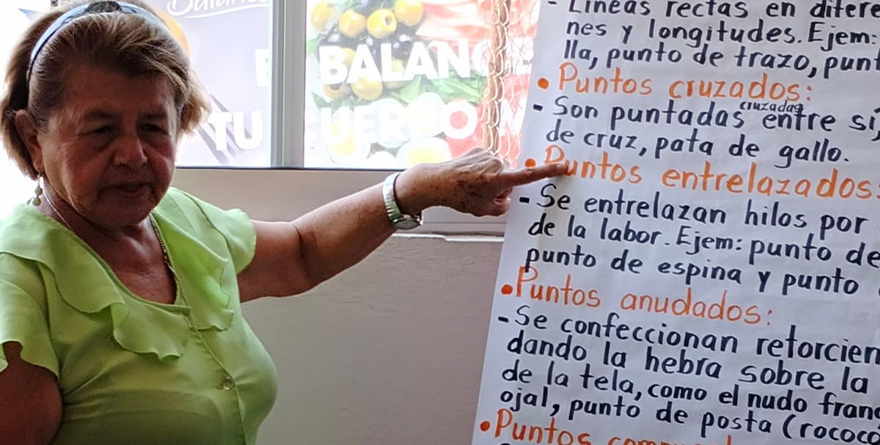 BALANCE
TU CUERPO
- Líneas rectas en
nes y longitudes. Ejem:
lla, punto de trazo,
• Puntos cruzados:
- Son puntadas cruzadas entre sí,
de cruz, pata de gallo.
• Puntos entrelazados:
- Se entrelazan hilos por
de la labor. Ejem: punto de
punto de espina y punto
• Puntos anudados:
- Se confeccionan retorcien
dando la hebra sobre la
de la tela, como el nudo fran
ojal, punto de posta (rococó
• Puntos